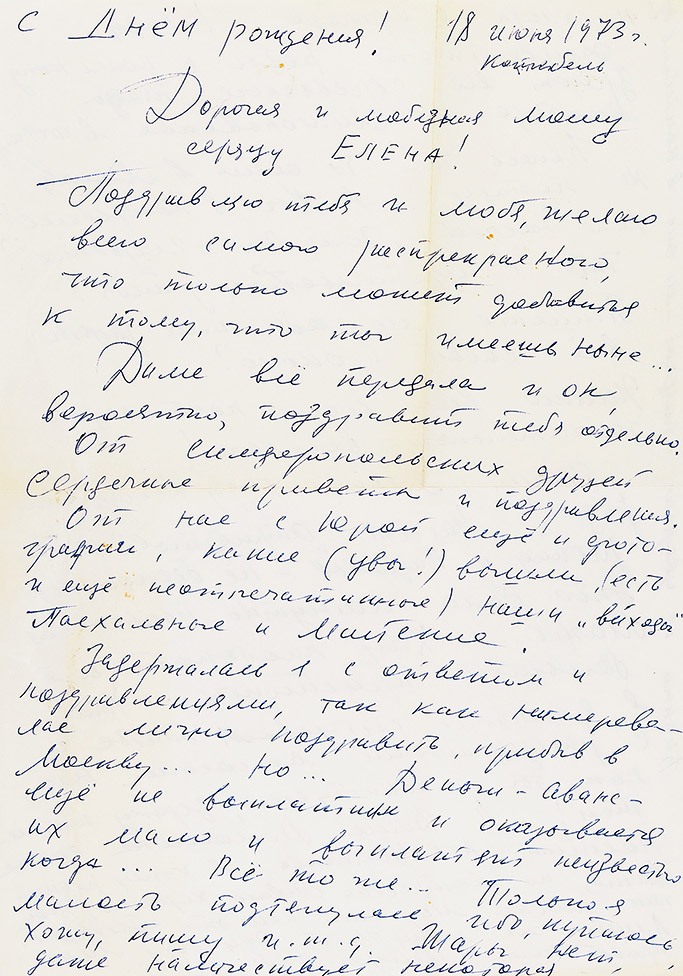 С Днём рождения! 18 июня 1973 г.
Коктебель
Дорогая и любезная моему
сердцу ЕЛЕНА!
Поздравляю тебя и любя, желаю
всего самого распрекрасного,
что только может добавиться
к тому, что ты имеешь ныне...
Диме всё передала и он,
вероятно, поздравит тебя отдельно.
От симферопольских друзей
сердечные приветы и поздравления.
От нас с Юрой ещё и фото-
графии, какие (увы!) вышли, (есть
и ещё неотпечатанные) наши „выходы"
Пасхальные и
Задержалась я с ответом и
поздравлениями, так как намерева-
лась лично поздравить, прибыв в
Москву... Но... Деньги-аванс-
ещё не выплатили и оказывается
их мало и выплатят неизвестно
когда... Всё то же... Только я
малость подтянулась, ибо,
хожу, пишу и.т.д. Жары нет,
даже наличествует некоторая